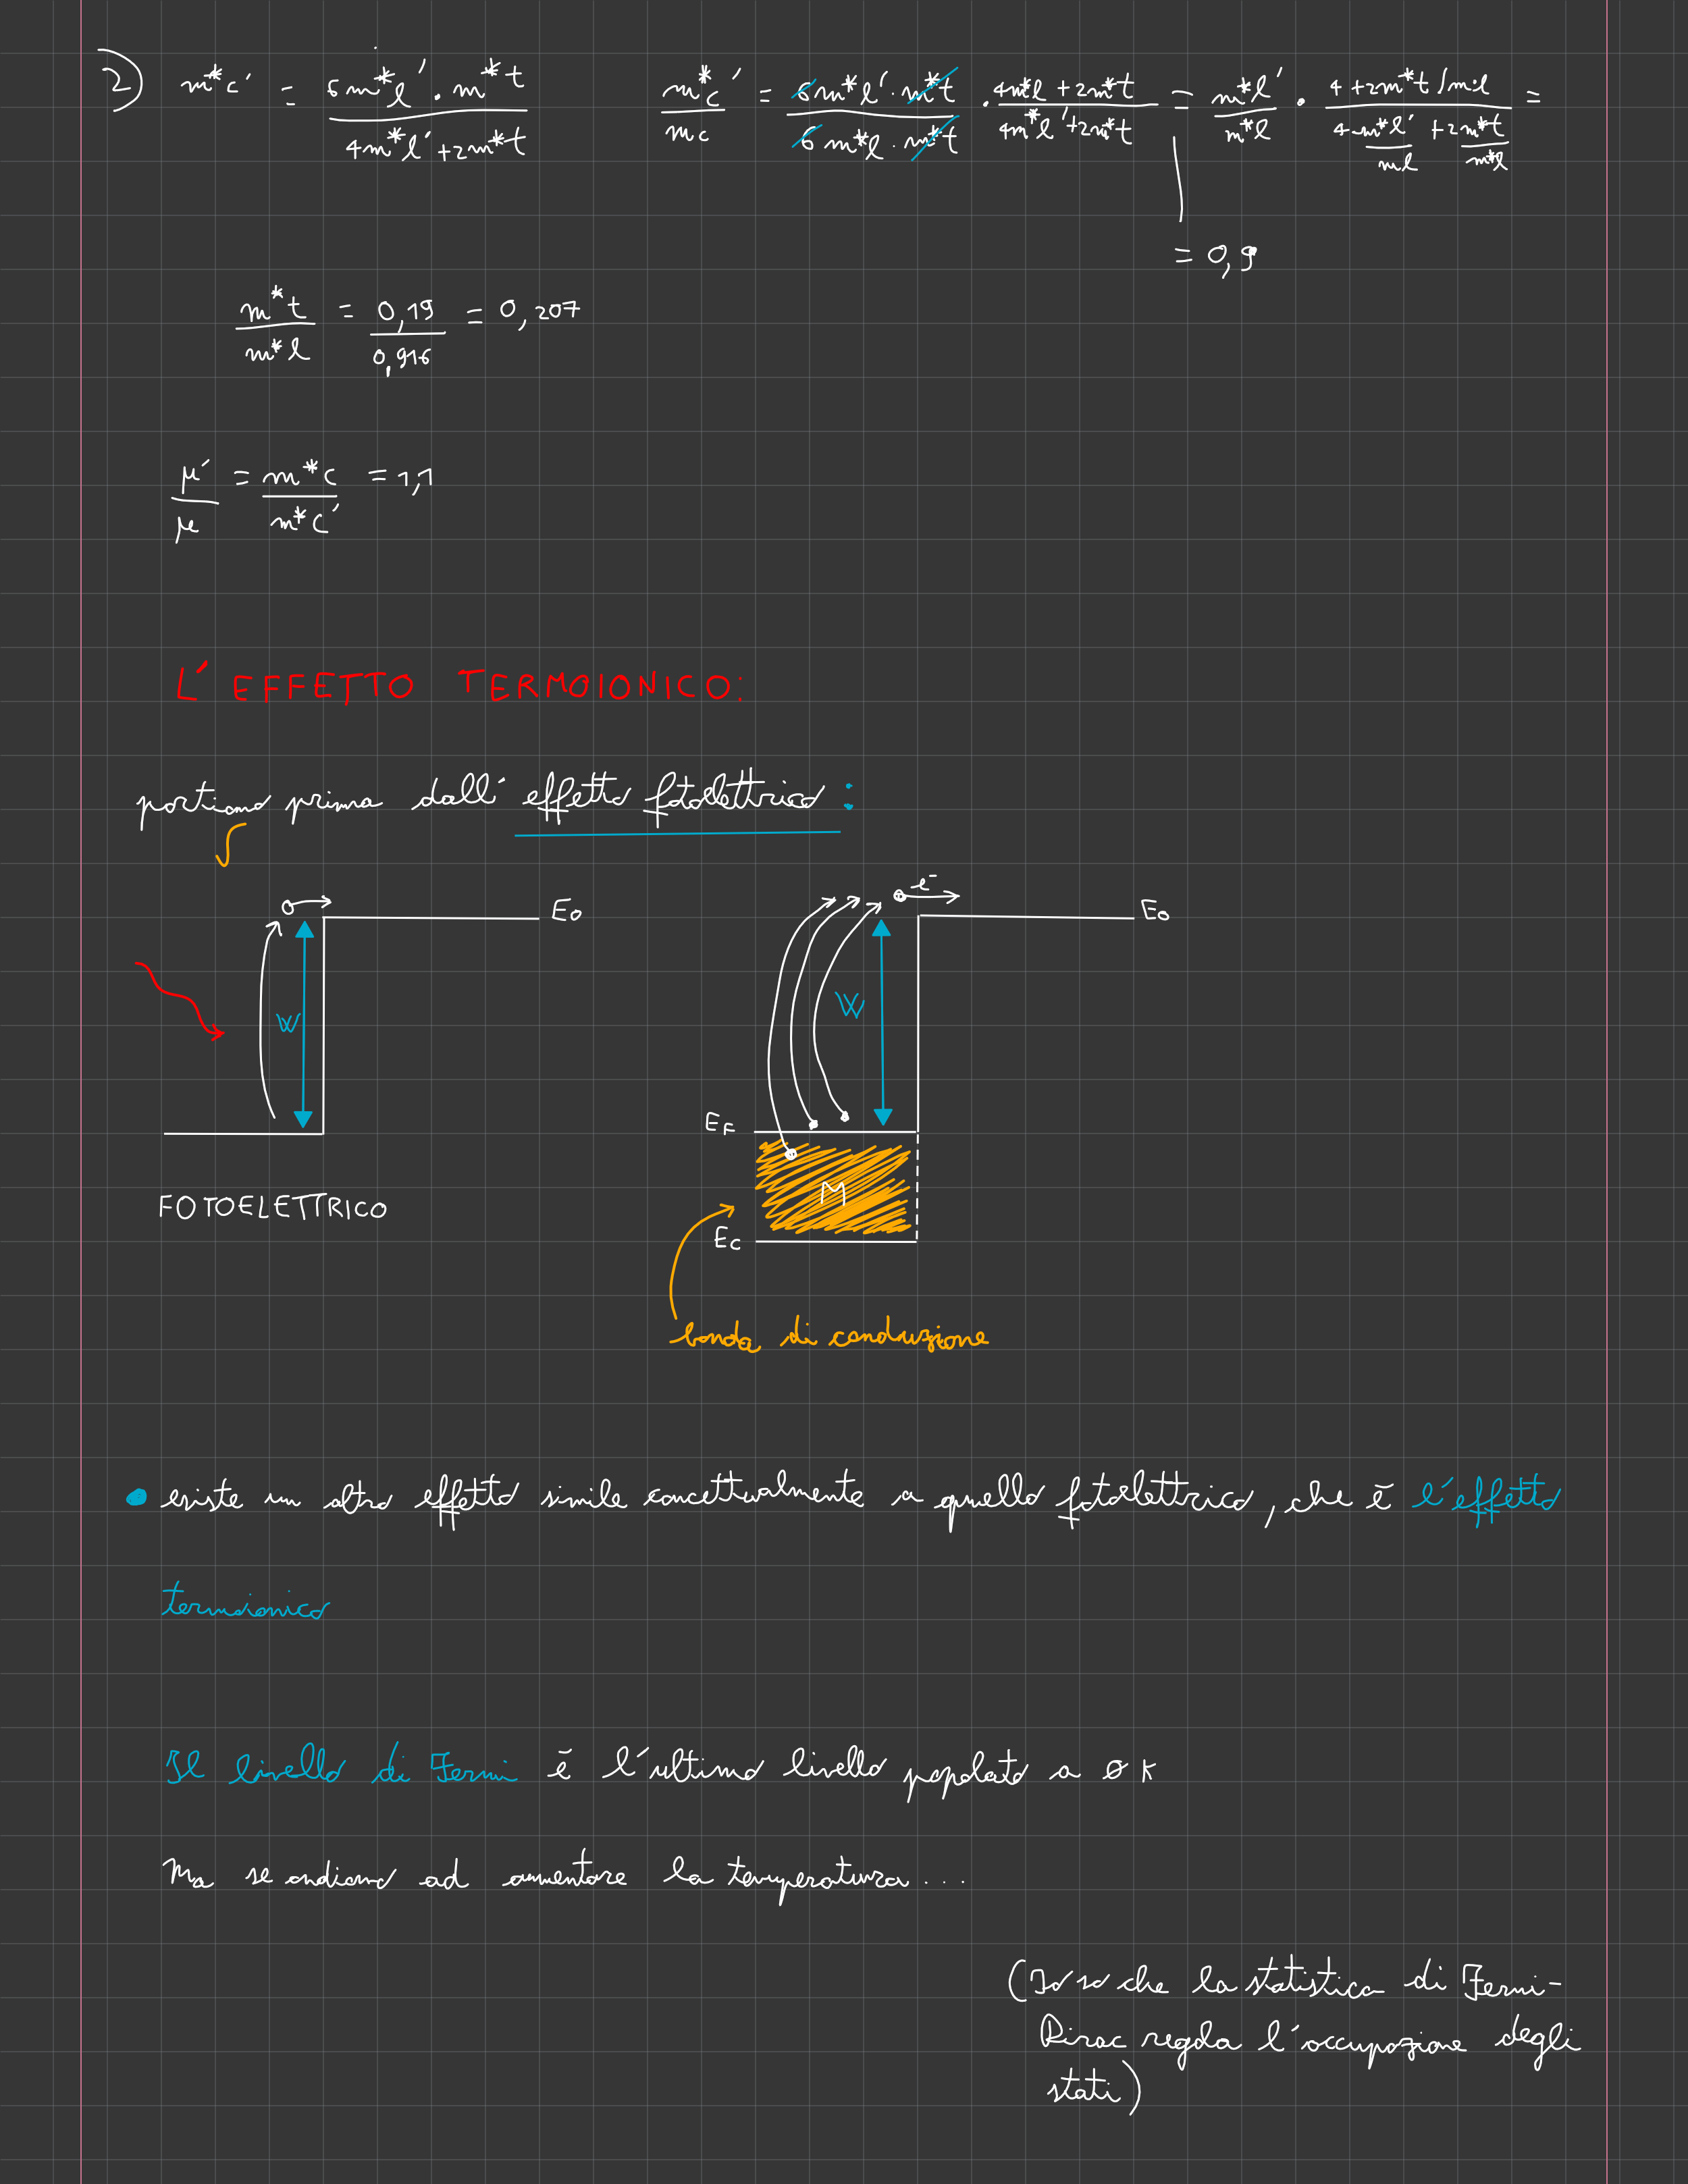 2) m*c' = 6m*l' · m*t / 4m*l' + 2m*t    m*c' / mc = 6m*l' · m*t / 6m*l · m*t · 4m*l + 2m*t / 4m*l' + 2m*t = m*l' / m*l · 4 + 2m*t/m*l / 4 m*l'/ml + 2m*t/m*l =
= 0,9
m*t / m*l = 0,19 / 0,916 = 0,207
μ' / μ = m*c / m*c' = 1,1
L'EFFETTO TERMOIONICO:
partiamo prima dall'effetto fotoelettrico:
e-
E0 E0
W W
EF
FOTOELETTRICO M
EC
banda di conduzione
• esiste un altro effetto simile concettualmente a quello fotoelettrico, che è l'effetto
termoionico
Il livello di Fermi è l'ultimo livello popolato a 0 K
Ma se andiamo ad aumentare la temperatura...
(Io so che la statistica di Fermi-
Dirac regola l'occupazione degli
stati)